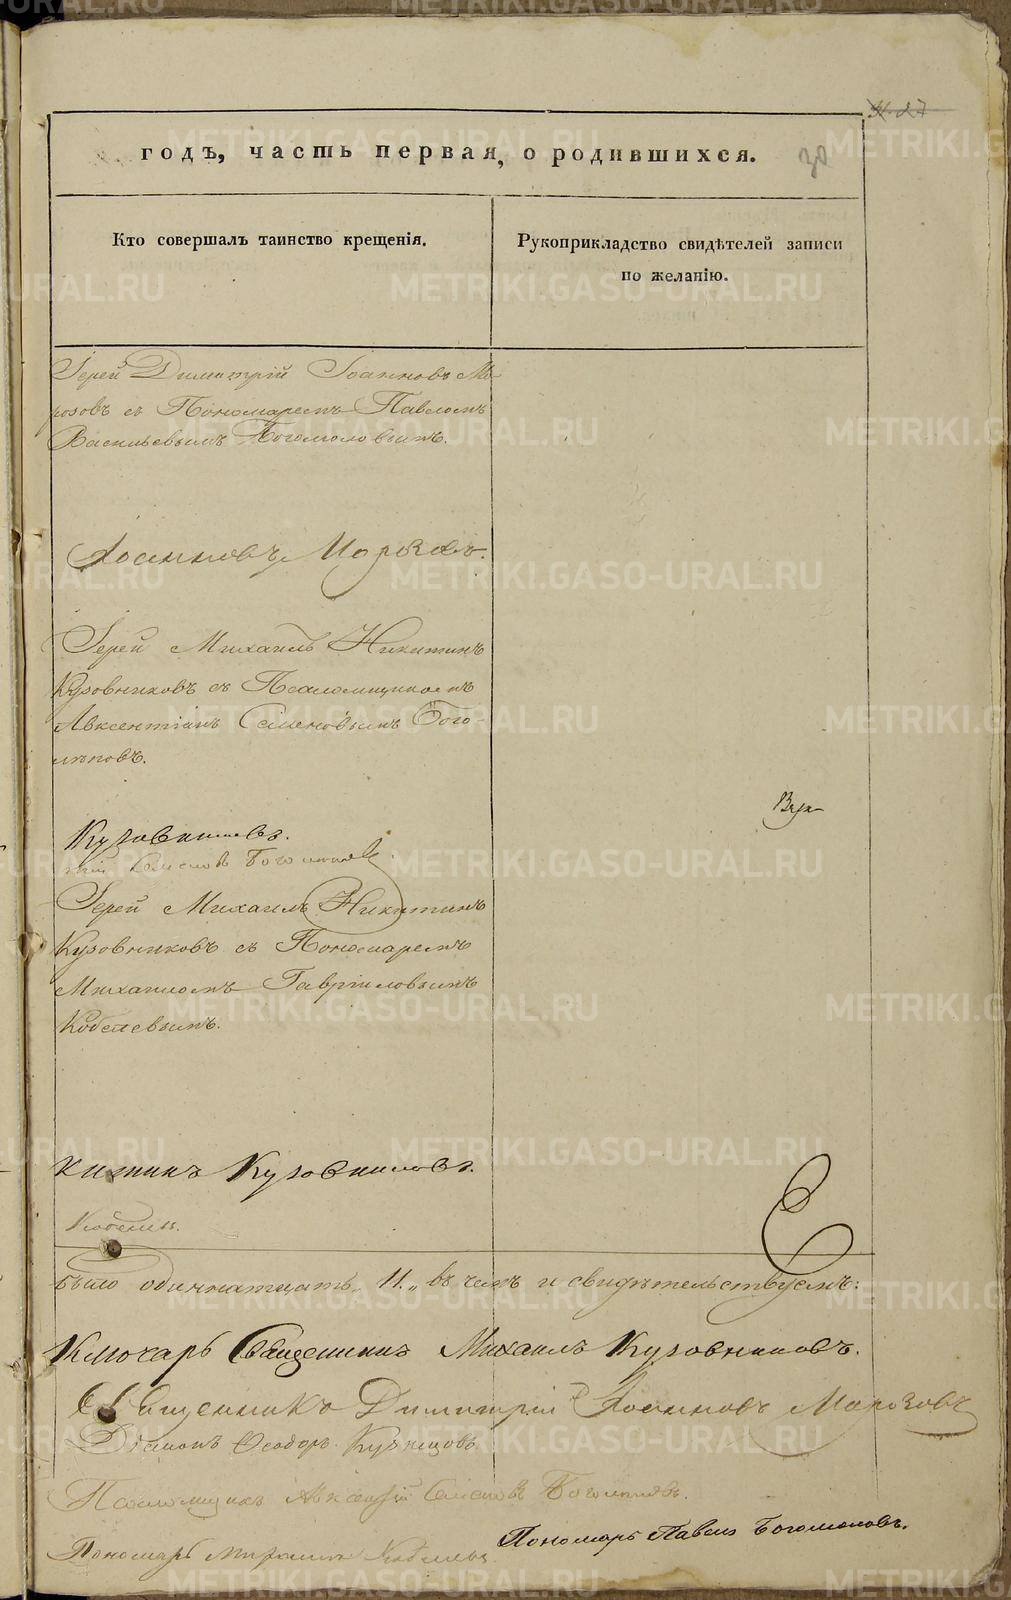 27
годъ, часть первая, о родившихся. 30
Кто совершалъ таинство крещенія.
Рукоприкладство свидѣтелей записи
по желанію.
Іерей Димитрій Іоанновъ Мо-
розовъ съ Пономаремъ Павломъ
Васильевымъ Богомоловымъ.
Іоанновъ Морозовъ.
Іерей Михаилъ Никитинъ
Кузовниковъ съ Псаломщикомъ
Авксентіемъ Семеновымъ Бого-
лѣповъ.
Кузовниковъ.
Семеновъ Боголѣповъ
Іерей Михаилъ Никитинъ
Кузовниковъ съ Пономаремъ
Михаиломъ Гавриловымъ
Кобелевымъ.
китинъ Кузовниковъ.
Кобелевъ.
было одиннатцать „11„ въ чемъ и свидѣтельствуемъ:
Ключарь Священникъ Михаилъ Кузовниковъ.
Священникъ Димитрій Іоанновъ Морозовъ
Діаконъ Ѳеодоръ Кузнецовъ
Псаломщикъ Авксентій Семеновъ Боголѣповъ.
Пономарь Павелъ Богомоловъ.
Пономарь Михаилъ Кобелевъ
METRIKI.GASO-URAL.RU